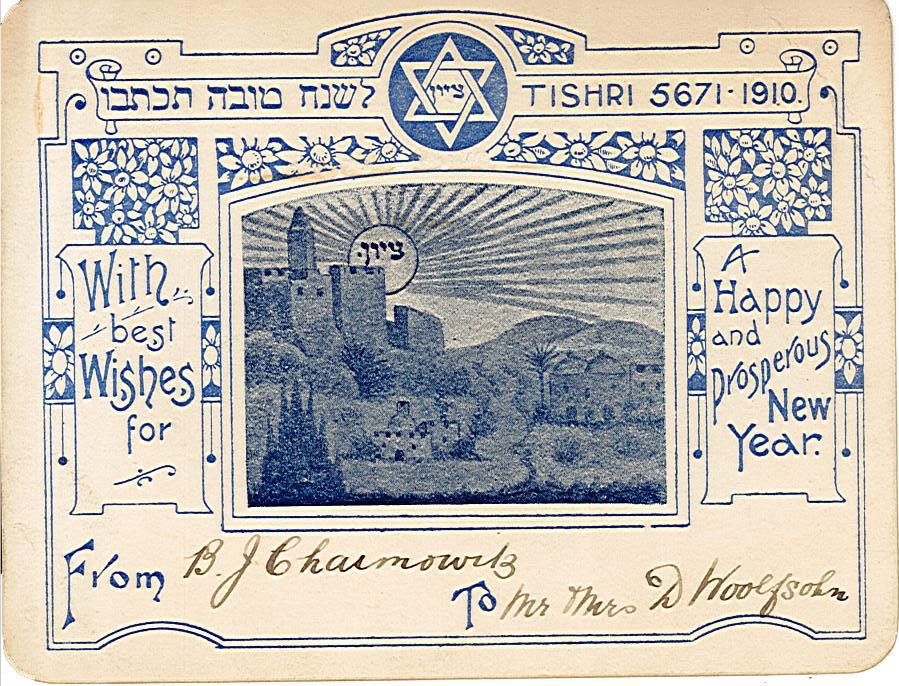 לשנה טובה תכתבו
ציון
TISHRI 5671-1910.
ציון
With
best
Wishes
for
A
Happy
and
Prosperous
New
Year.
From B. J Chaimowitz
To Mr Mrs D Woolfsohn